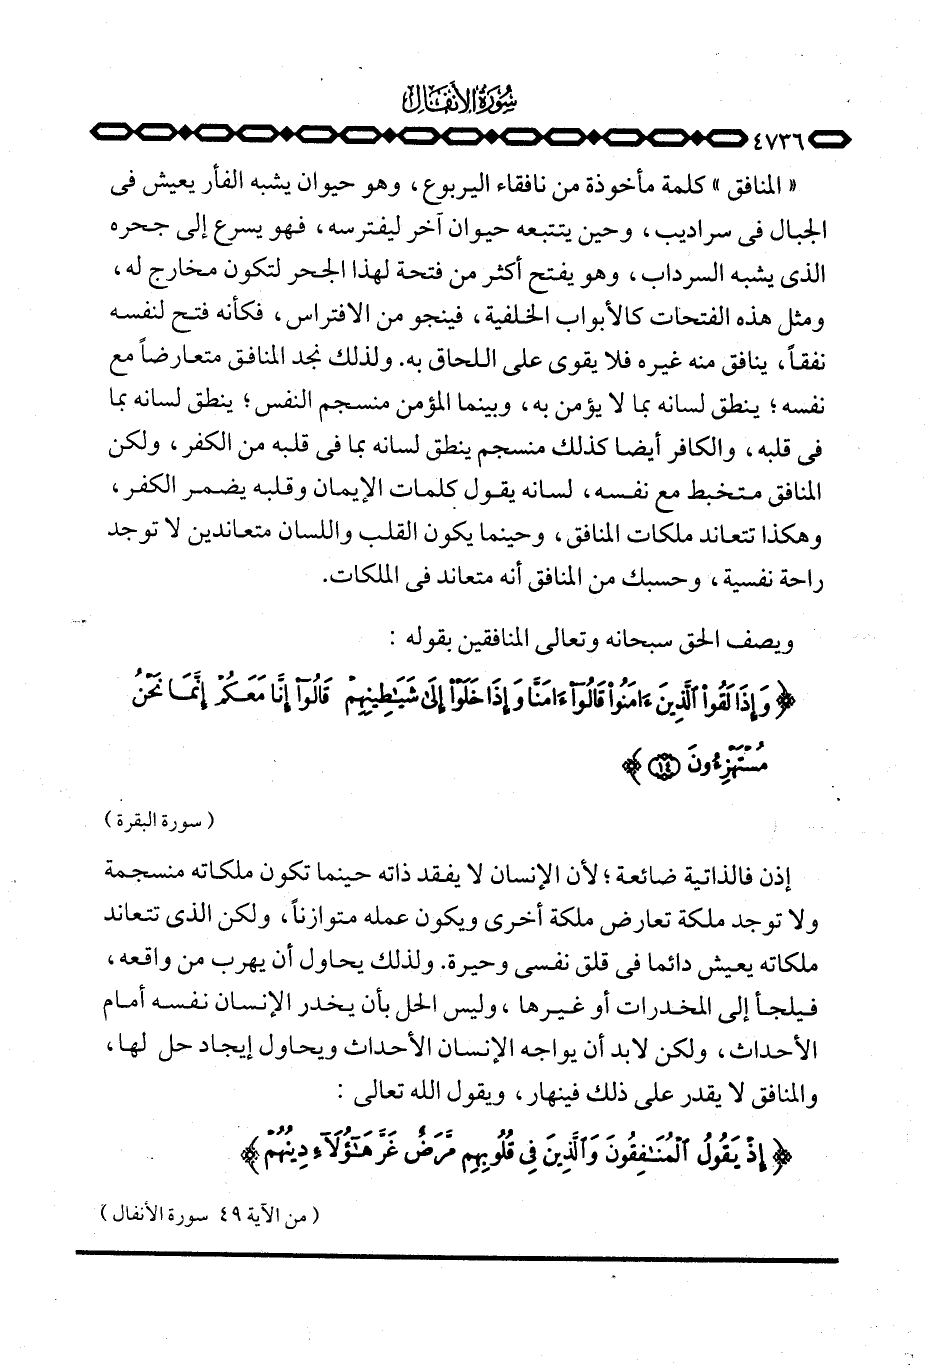 سُورَةُ الأَنفَال
٤٧٣٦
« المنافق » كلمة مأخوذة من نافقاء اليربوع ، وهو حيوان يشبه الفأر يعيش فى
الجبال فى سراديب ، وحين يتتبعه حيوان آخر ليفترسه ، فهو يسرع إلى جحره
الذى يشبه السرداب ، وهو يفتح أكثر من فتحة لهذا الجحر لتكون مخارج له ،
ومثل هذه الفتحات كالأبواب الخلفية ، فينجو من الافتراس ، فكأنه فتح لنفسه
نفقاً ، ينافق منه غيره فلا يقوى على اللحاق به. ولذلك نجد المنافق متعارضاً مع
نفسه ؛ ينطق لسانه بما لا يؤمن به ، وبينما المؤمن منسجم النفس ؛ ينطق لسانه بما
فى قلبه ، والكافر أيضا كذلك منسجم ينطق لسانه بما فى قلبه من الكفر ، ولكن
المنافق متخبط مع نفسه ، لسانه يقول كلمات الإيمان وقلبه يضمر الكفر ،
وهكذا تتعاند ملكات المنافق ، وحينما يكون القلب واللسان متعاندين لا توجد
راحة نفسية ، وحسبك من المنافق أنه متعاند فى الملكات.
ويصف الحق سبحانه وتعالى المنافقين بقوله :
﴿ وَإِذَا لَقُوا۟ ٱلَّذِينَ ءَامَنُوا۟ قَالُوٓا۟ ءَامَنَّا وَإِذَا خَلَوْا۟ إِلَىٰ شَيَـٰطِينِهِمْ قَالُوٓا۟ إِنَّا مَعَكُمْ إِنَّمَا نَحْنُ
مُسْتَهْزِءُونَ ١٤ ﴾
( سورة البقرة )
إذن فالذاتية ضائعة ؛ لأن الإنسان لا يفقد ذاته حينما تكون ملكاته منسجمة
ولا توجد ملكة تعارض ملكة أخرى ويكون عمله متوازناً ، ولكن الذى تتعاند
ملكاته يعيش دائما فى قلق نفسى وحيرة. ولذلك يحاول أن يهرب من واقعه ،
فيلجأ إلى المخدرات أو غيرها ، وليس الحل بأن يخدر الإنسان نفسه أمام
الأحداث ، ولكن لابد أن يواجه الإنسان الأحداث ويحاول إيجاد حل لها ،
والمنافق لا يقدر على ذلك فينهار ، ويقول الله تعالى :
﴿ إِذْ يَقُولُ ٱلْمُنَـٰفِقُونَ وَٱلَّذِينَ فِى قُلُوبِهِم مَّرَضٌ غَرَّ هَـٰٓؤُلَآءِ دِينُهُمْ ﴾
( من الآية ٤٩ سورة الأنفال )